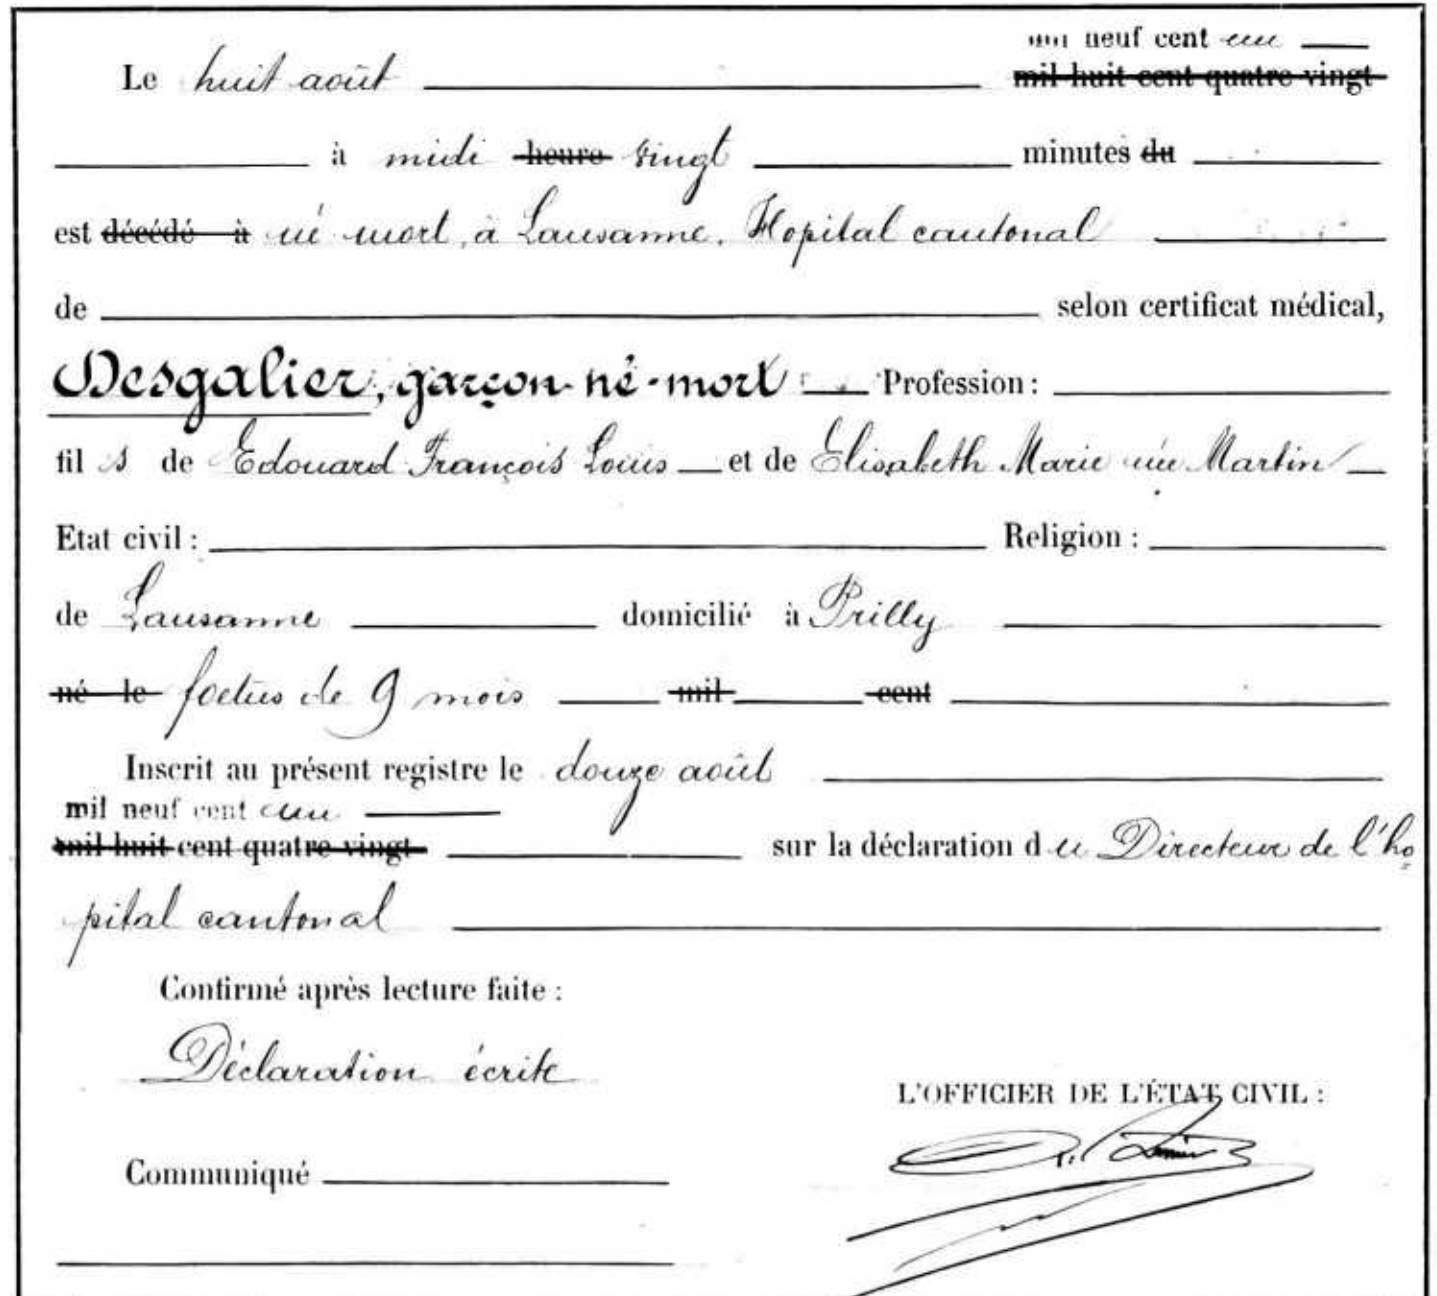 mil neuf cent un
Le huit août mil huit cent quatre-vingt
à midi heure vingt minutes du
est décédé à né mort, à Lausanne. Hopital cantonal
de selon certificat médical,
Desgalier, garçon né-mort Profession :
fils de Edouard François Louis et de Elisabeth Marie née Martin
Etat civil : Religion :
de Lausanne domicilié à Prilly
né le foetus de 9 mois mil cent
Inscrit au présent registre le douze août
mil neuf cent un
mil huit cent quatre-vingt sur la déclaration du Directeur de l'ho
pital cantonal
Confirmé après lecture faite :
Déclaration écrite
L'OFFICIER DE L'ÉTAT CIVIL :
Communiqué